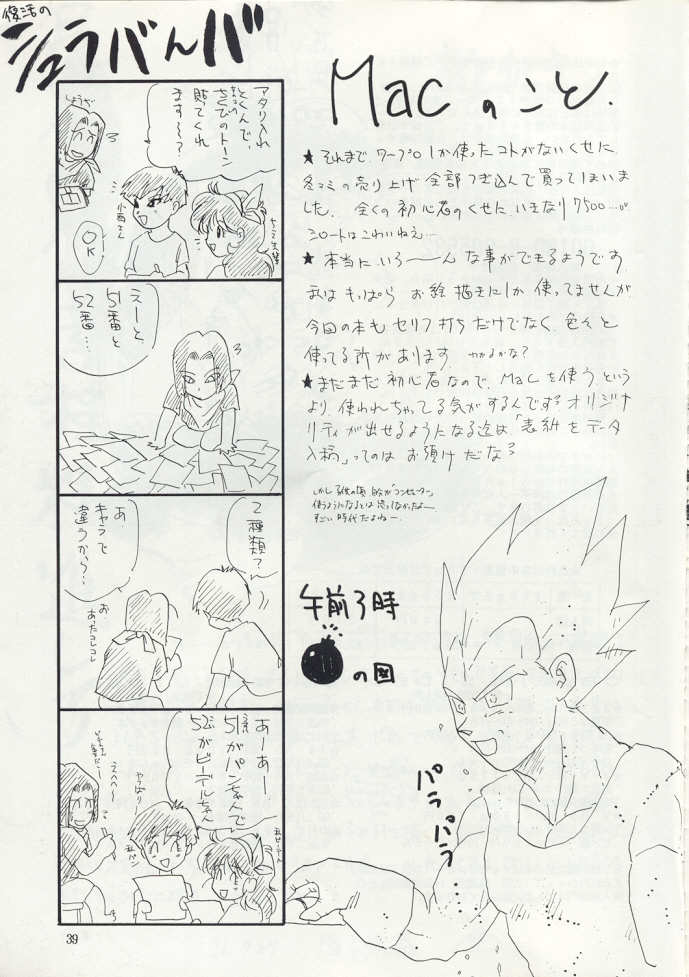 復活の
シュラバんバ
Macのこと.
★それまで、ワープロしか使ったコトがないくせに
冬コミの売り上げ全部つぎ込んで買ってしまいま
した。全くの初心者のくせに、いきなり7500…。
シロートはこわいねえ…
★本当にいろ〜〜んな事ができるようです。
私はもっぱらお絵描きにしか使ってませんが、
今回の本もセリフ打ちだけでなく、色々と
使ってる所があります。わかるかな?
★まだまだ初心者なので、Macを使う、という
より、使われちゃってる気がするんですヨ。オリジナ
リティが出せるようになる迄は「表紙をデータ
入稿」ってのはお預けだな?
すごい時代だよねー.
アタリ入れ
とくんで、
ますー?
OK
えーと、
51番と
52番…
2種類?
あ、
キャラで
違うから?
お
あったコレコレ
あーあー
51がパンちゃんで
52がビーデルちゃん
やっぱり
えへへー!
午前3時
の図
パラパラ…
39